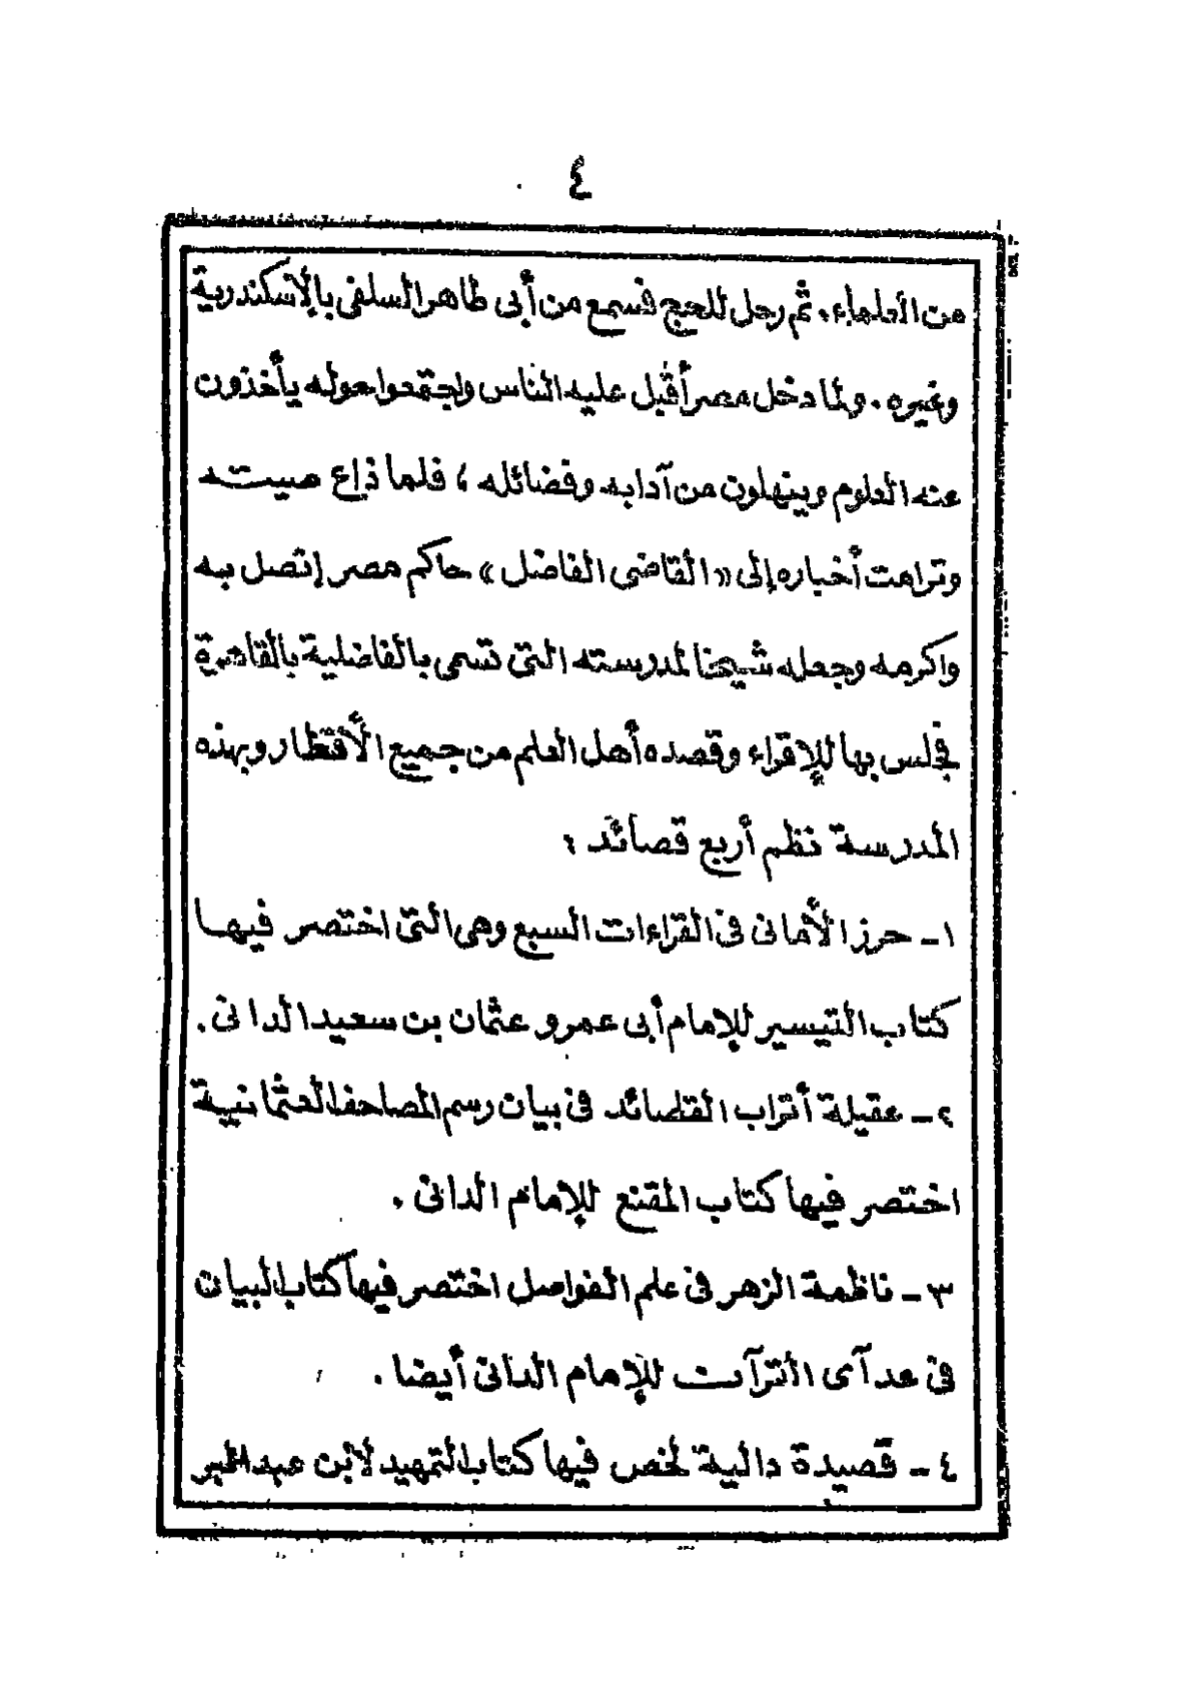 ٤
من العلماء. ثم رحل للحج فسمع من أبى طاهر السلفى بالإسكندرية
وغيره. ولما دخل مصر أقبل عليه الناس واجتمعوا حوله يأخذون
عنه العلوم وينهلون من آدابه وفضائله، فلما ذاع صيته
وترامت أخباره إلى «القاضى الفاضل» حاكم مصر إتصل به
واكرمه وجعله شيخا لمدرسته التى تسمى بالفاضلية بالقاهرة
فجلس بها للإقراء وقصده أهل العلم من جميع الأقطار وبهذه
المدرسة نظم أربع قصائد :
١ـ حرز الأمانى فى القراءات السبع وهى التى اختصر فيها
كتاب التيسير للإمام أبى عمرو عثمان بن سعيد الدانى.
٢ـ عقيلة أتراب القصائد فى بيان رسم المصاحف العثمانية
اختصر فيها كتاب المقنع للإمام الدانى .
٣ـ ناظمة الزهر فى علم الفواصل اختصر فيها كتاب البيان
فى عد آى القرآن للإمام الدانى أيضا .
٤ـ قصيدة دالية لخص فيها كتاب التمهيد لابن عبد البر